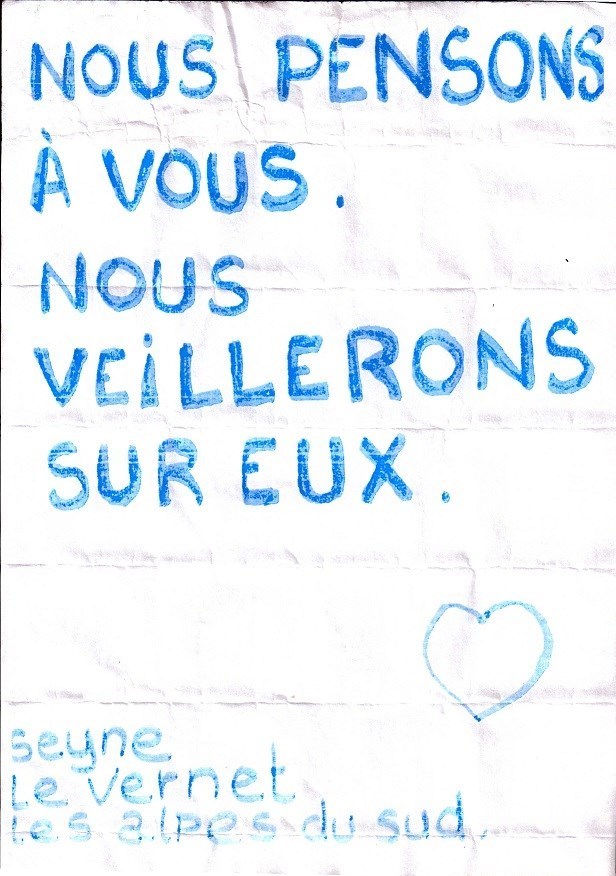 NOUS PENSONS
À VOUS.
NOUS
VEiLLERONS
SUR EUX.
seyne
Le Vernet
Les alpes du sud.